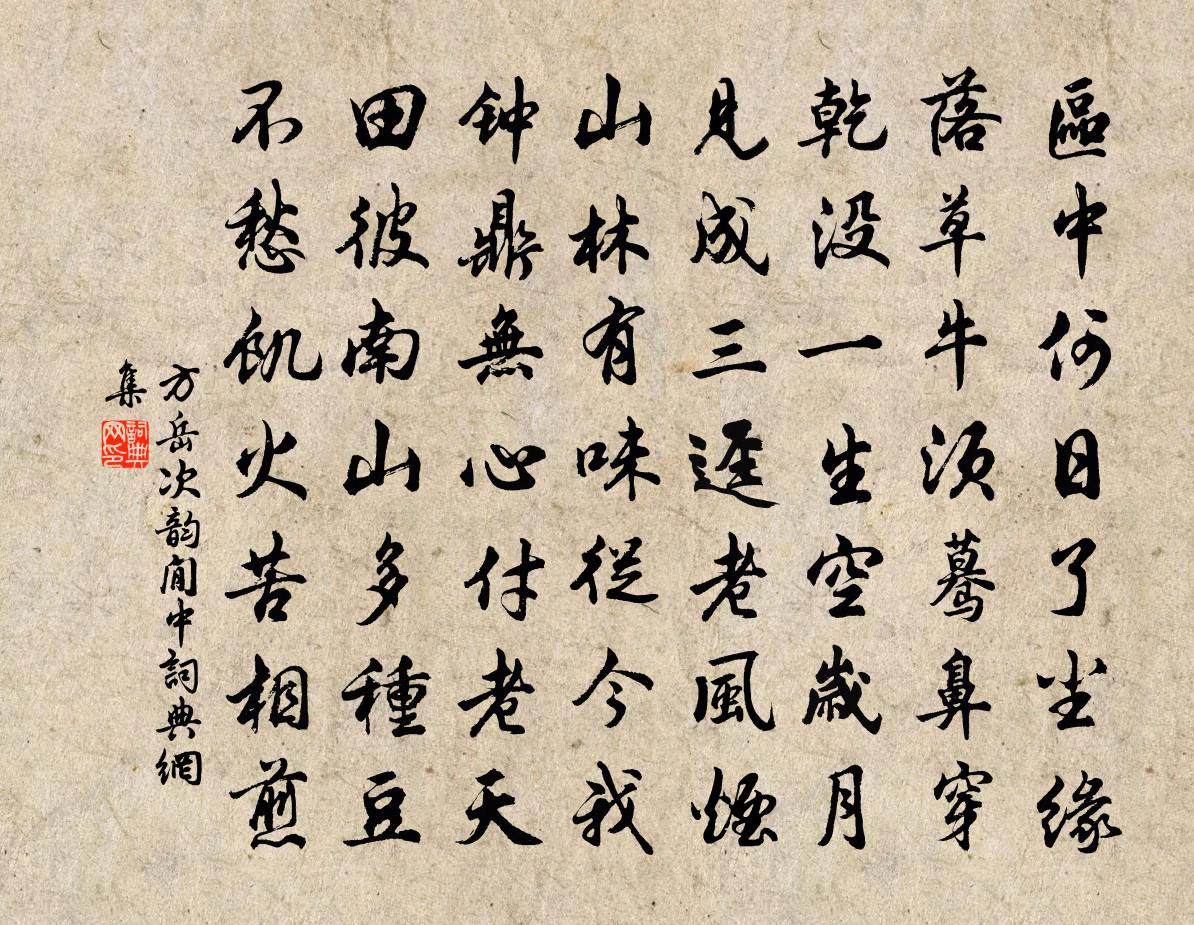 區中何日了尘緣
落草牛須驀鼻穿
乾没一生空歲月
見成三逕老風煙
山林有味從今我
钟鼎無心付老天
田彼南山多種豆
不愁飢火苦相煎
方岳次韵閒中詞典網
集
詞典网印